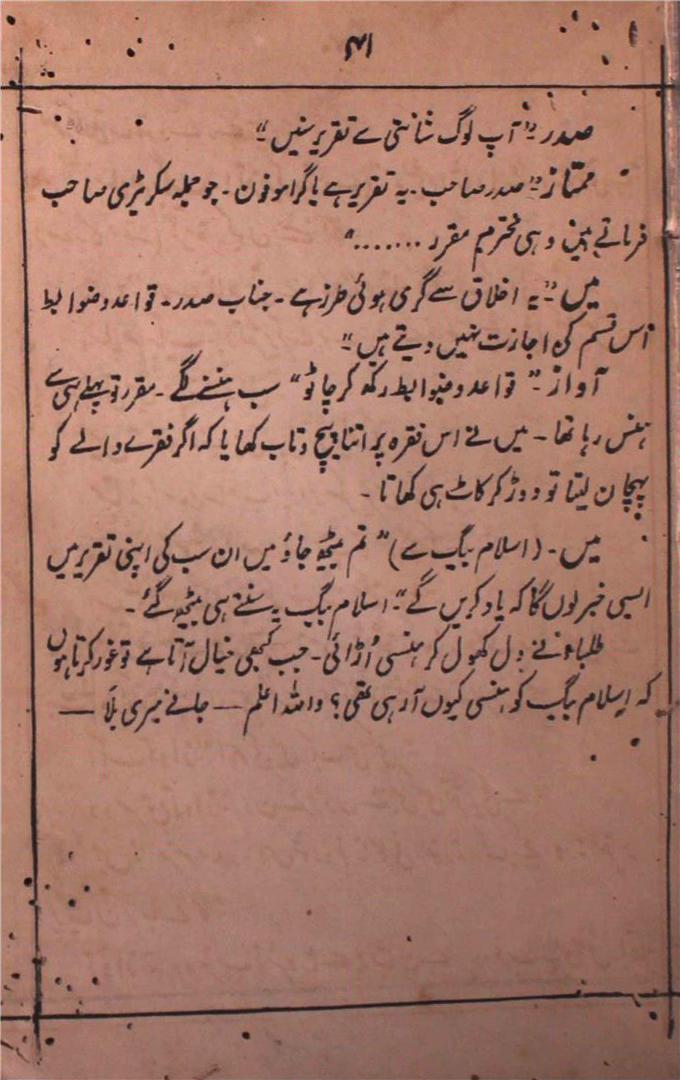 ۴۱
صدر۔ "آپ لوگ شانتی سے تقریر سنیں"
ممتاز۔ "صدر صاحب۔ یہ تقریر ہے یا گراموفون۔ جو جملہ سکریٹری صاحب
فرماتے ہیں وہی محترم مقرر ........"
میں۔ "یہ اخلاق سے گری ہوئی طرز ہے۔ جناب صدر۔ قواعد و ضوابط
اس قسم کی اجازت نہیں دیتے ہیں"
آواز۔ "قواعد و ضوابط رکھ کر چاٹو" سب ہنسنے لگے۔ مقرر تو پہلے ہی سے
ہنس رہا تھا۔ میں نے اس فقرہ پر اتنا پیچ و تاب کھایا کہ اگر فقرے والے کو
پہچان لیتا تو دوڑ کر کاٹ ہی کھاتا۔
میں۔ (اسلام بیگ سے) "تم بیٹھ جاؤ میں ان سب کی اپنی تقریر میں
ایسی خبر لوں گا کہ یاد کریں گے"۔ اسلام بیگ یہ سنتے ہی بیٹھ گئے۔
طلباء نے دل کھول کر ہنسی اُڑائی۔ جب کبھی خیال آتا ہے تو غور کرتا ہوں
کہ اسلام بیگ کو ہنسی کیوں آ رہی تھی؟ واللہ اعلم — جانے میری بلَا —